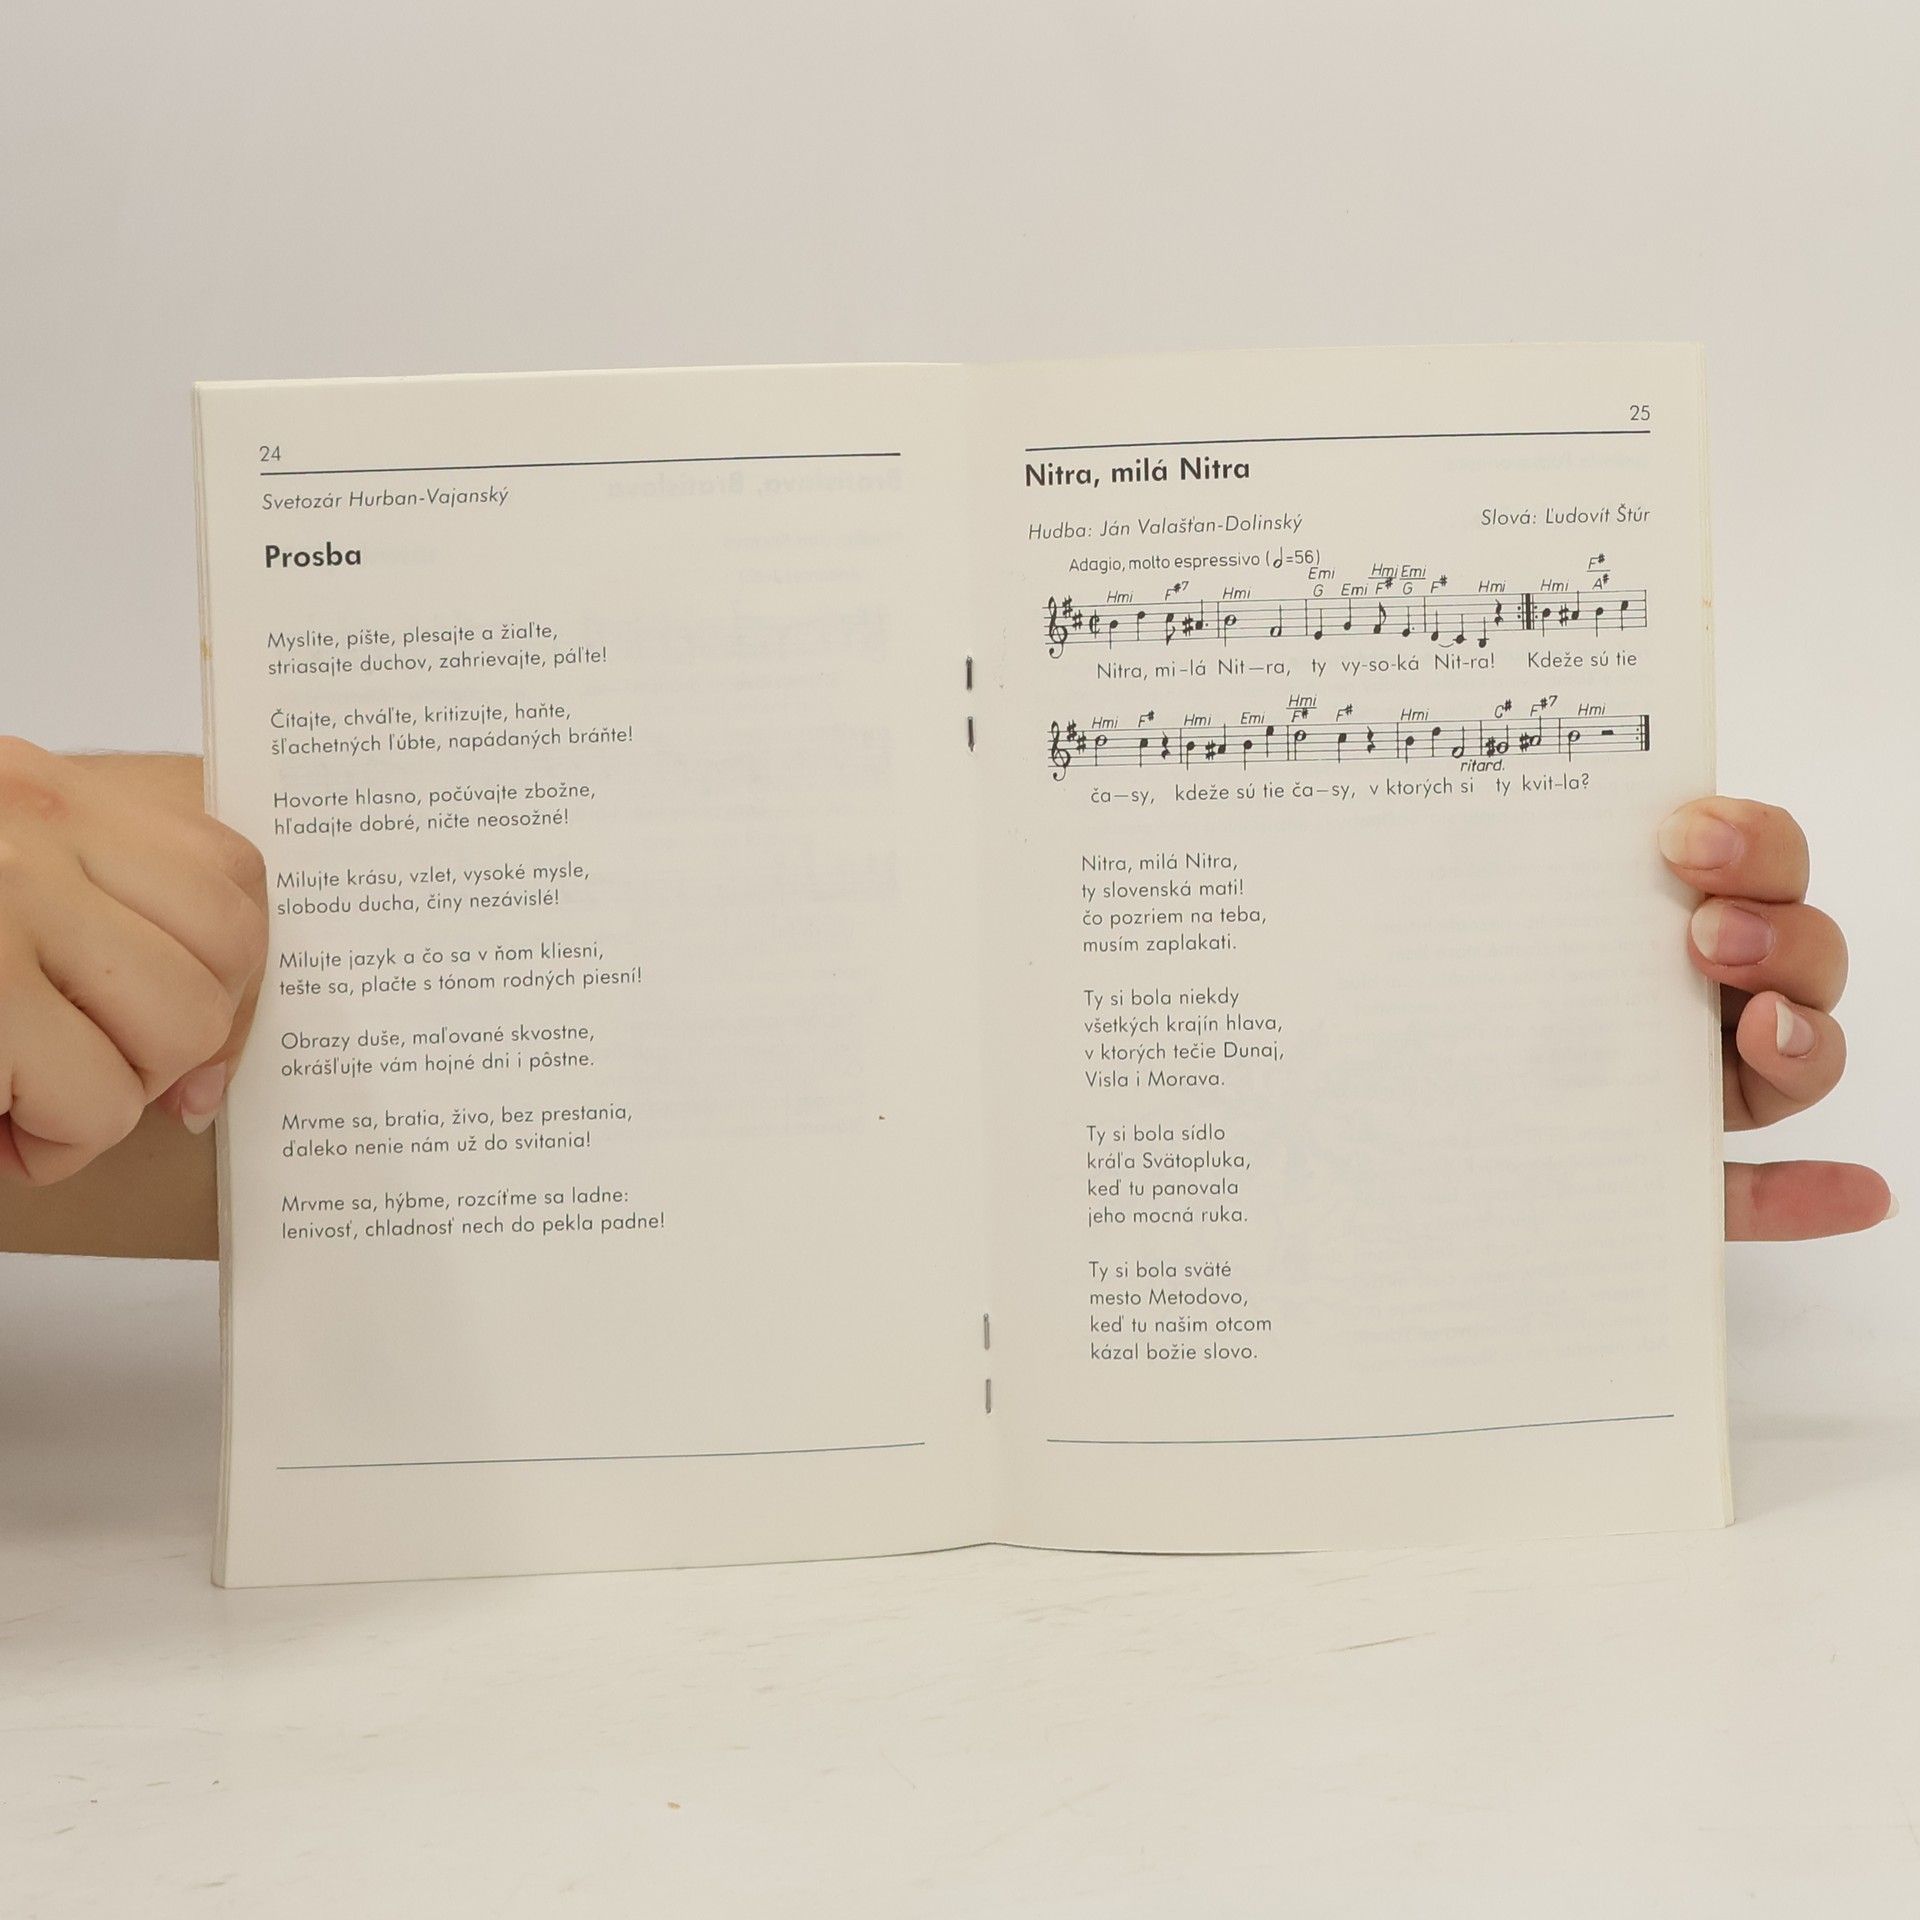 24
Svetozár Hurban-Vajanský
Prosba
Myslite, píšte, plesajte a žiaľte,
striasajte duchov, zahrievajte, páľte!
Čítajte, chváľte, kritizujte, haňte,
šľachetných ľúbte, napádaných bráňte!
Hovorte hlasno, počúvajte zbožne,
hľadajte dobré, ničte neosožné!
Milujte krásu, vzlet, vysoké mysle,
slobodu ducha, činy nezávislé!
Milujte jazyk a čo sa v ňom kliesni,
tešte sa, plačte s tónom rodných piesní!
Obrazy duše, maľované skvostne,
okrášľujte vám hojné dni i pôstne.
Mrvme sa, bratia, živo, bez prestania,
ďaleko nenie nám už do svitania!
Mrvme sa, hýbme, rozcíťme sa ladne:
lenivosť, chladnosť nech do pekla padne!
25
Nitra, milá Nitra
Hudba: Ján Valašťan-Dolinský Slová: Ľudovít Štúr
Adagio, molto espressivo (𝅗𝅥=56)
Hmi F#7 Hmi Emi/G Emi Hmi/F# Emi/G F# Hmi Hmi F#/A#
Nitra, mi-lá Nit—ra, ty vy-so-ká Nit-ra! Kdeže sú tie
Hmi F# Hmi Emi Hmi/F# F# Hmi C# F#7 Hmi
ritard.
ča—sy, kdeže sú tie ča—sy, v ktorých si ty kvit-la?
Nitra, milá Nitra,
ty slovenská mati!
čo pozriem na teba,
musím zaplakati.
Ty si bola niekdy
všetkých krajín hlava,
v ktorých tečie Dunaj,
Visla i Morava.
Ty si bola sídlo
kráľa Svätopluka,
keď tu panovala
jeho mocná ruka.
Ty si bola sväté
mesto Metodovo,
keď tu našim otcom
kázal božie slovo.